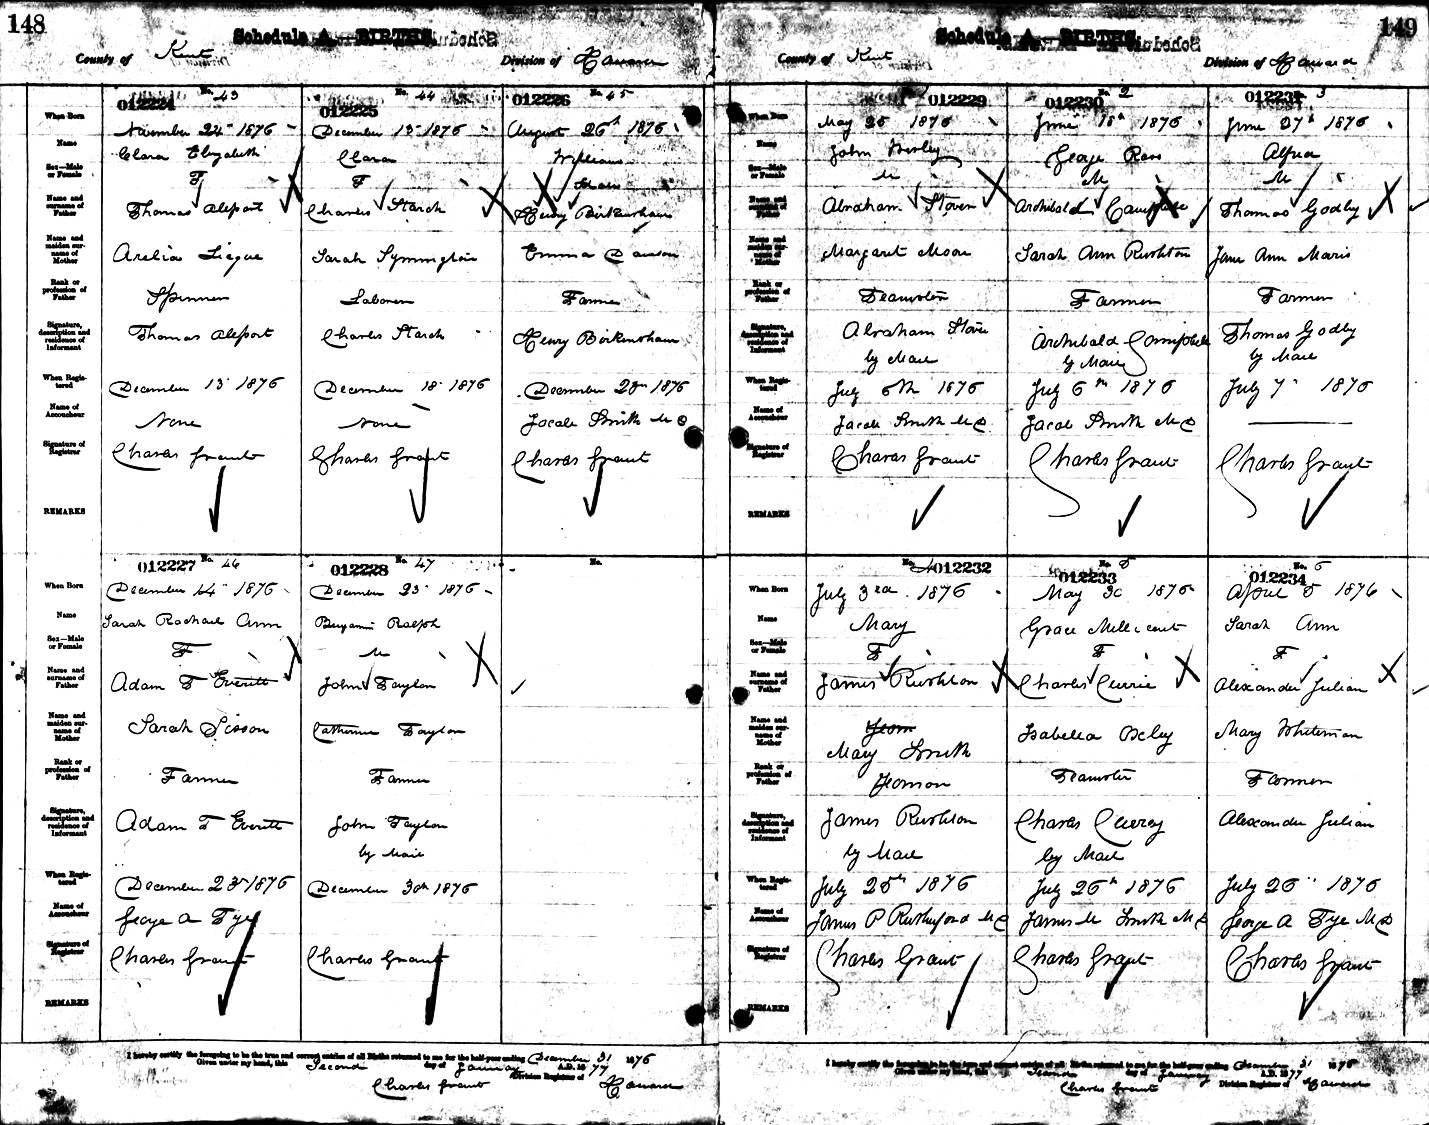 148
Schedule A—BIRTHS.
County of Kent
Division of Howard
012224 No. 43
012225 No. 44
012226 No. 45
When Born
November 24th 1876
December 13th 1876
August 26th 1876
Name
Clara Elizabeth
Clara
William
Sex—Male or Female
F
F
Male
Name and surname of Father
Thomas Aleport
Charles Starch
Henry Birkensham
Name and maiden surname of Mother
Sarah Symington
Emma Dawson
Rank or profession of Father
Spinner
Laborer
Farmer
Signature, description and residence of Informant
Thomas Aleport
Charles Starch
Henry Birkensham
When Registered
December 13th 1876
December 18th 1876
December 28th 1876
Name of Accoucheur
None
None
Jacob Smith MD
Signature of Registrar
Charles Grant
Charles Grant
Charles Grant
REMARKS
012227 No. 46
012228 No. 47
No.
When Born
December 14th 1876
December 23rd 1876
Name
Sarah Rachael Ann
Benjamin Ralph
Sex—Male or Female
F
M
Name and surname of Father
Adam T Everitt
John Taylor
Name and maiden surname of Mother
Sarah Sisson
Catherine Taylor
Rank or profession of Father
Farmer
Farmer
Signature, description and residence of Informant
Adam T Everitt
John Taylor
by Mail
When Registered
December 23rd 1876
December 30th 1876
Name of Accoucheur
George A Tye
Signature of Registrar
Charles Grant
Charles Grant
REMARKS
I hereby certify the foregoing to be the true and correct entries of all Births returned to me for the half-year ending December 31 1876
Given under my hand, this Second day of January A.D. 1877
Charles Grant Division Registrar of Howard
149
Schedule A—BIRTHS.
County of Kent
Division of Howard
012229
012230 No. 2
012231 No. 3
When Born
May 25 1876
June 18th 1876
June 27th 1876
Name
John Wesley
George Ross
Alfred
Sex—Male or Female
M
M
M
Name and surname of Father
Abraham Stover
Archibald Campbell
Thomas Godby
Name and maiden surname of Mother
Margaret Moore
Sarah Ann Rushton
Jane Ann Maris
Rank or profession of Father
Teamster
Farmer
Farmer
Signature, description and residence of Informant
Abraham Stover
by Mail
Archibald Campbell
by Mail
Thomas Godby
by Mail
When Registered
July 6th 1876
July 6th 1876
July 7th 1876
Name of Accoucheur
Jacob Smith MD
Jacob Smith MD
Signature of Registrar
Charles Grant
Charles Grant
Charles Grant
REMARKS
No. 4 012232
012233 No. 5
012234 No. 6
When Born
July 3rd 1876
May 30 1876
April 5 1876
Name
Mary
Grace Millicent
Sarah Ann
Sex—Male or Female
F
F
F
Name and surname of Father
James Rushton
Charles Currie
Alexander Julian
Name and maiden surname of Mother
Mary Smith
Isabella Beley
Mary Whiteman
Rank or profession of Father
Yeoman
Teamster
Farmer
Signature, description and residence of Informant
James Rushton
by Mail
Charles Currey
by Mail
Alexander Julian
When Registered
July 25th 1876
July 26th 1876
July 26th 1876
Name of Accoucheur
James P Rutherford MD
James M Smith MD
George A Tye MD
Signature of Registrar
Charles Grant
Charles Grant
Charles Grant
REMARKS
I hereby certify the foregoing to be the true and correct entries of all Births returned to me for the half-year ending December 31 1876
Given under my hand, this Second day of January A.D. 1877
Charles Grant Division Registrar of Howard